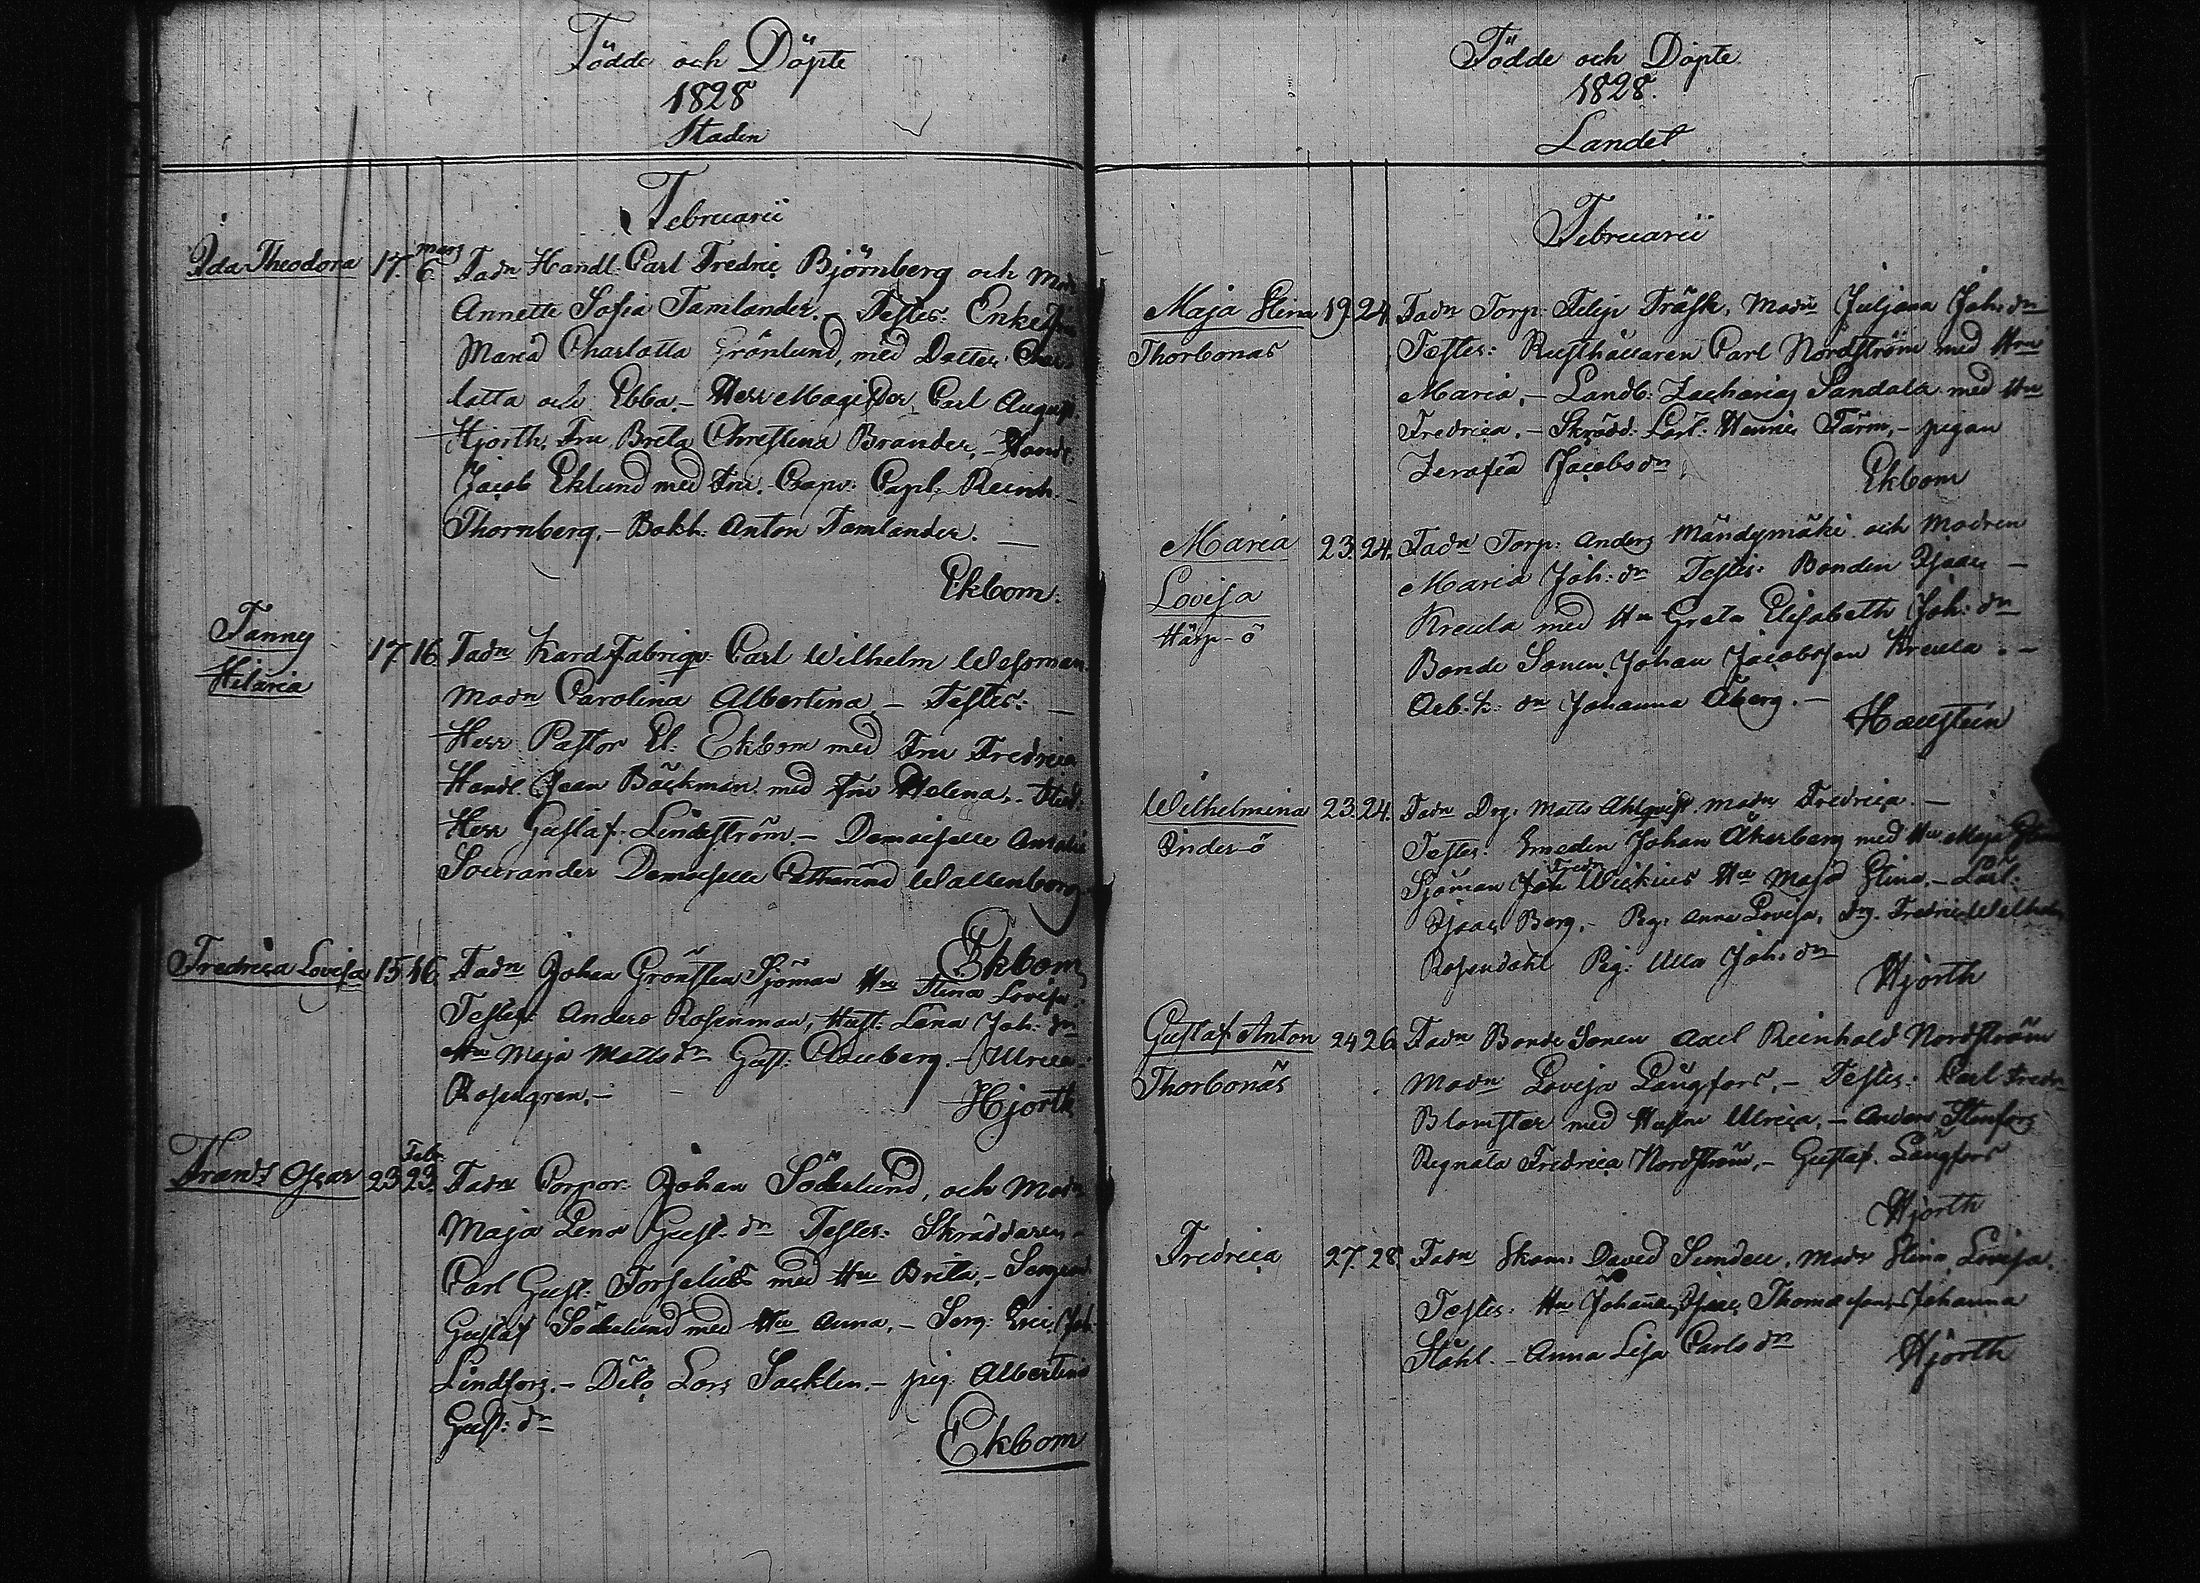 Födde och Döpte
1828
Staden
Februarii
Ida Theodora 17. Mars 6. Fadn Handl: Carl Fredric Björnberg och Modn
Annette Sofia Tamlander. - Testes: Enkefru
Maria Charlotta Grönlund, med Dotter Char-
lotta och Ebba. - Herr Magister Carl August
Hjorth, Fru Brita Christina Brander, - Handl:
Jacob Eklund med Fru. Capv: Capl: Reinh. -
Thornberg. - Bokh: Anton Tamlander. -
Ekbom.
Fanny
Hilaria
17 16. Fadn Kardfabriqv: Carl Wilhelm Wessman
Modn Carolina Albertina - Testes: -
Herr Pastor El: Ekbom med Fru Fredrica
Handl. Jean Bäckman med Fru Helena. - Stud:
Herr Gustaf Lindström. - Demoiselle Amalia
Sourander Demoiselle Catharina Wallenborg
Ekbom
Fredrica Lovisa 15. 16. Fadn Johan Grönsten Sjöman Hu Stina Lovisa:
Testes: Anders Rosenman, Hust: Lena Joh: dn
Hu Maja Matts dn Gust: Clauberg. - Ulrica
Rosengren. -
Hjorth
Frans Oscar 23. Febr. 23. Fadn Corpor: Johan Söderlund, och Modn
Maja Lena Gust: dn Testes: Skräddaren -
Carl Gust: Forselius med Hu Brita. - Sergeant
Gustaf Söderlund med Hu Anna. - Serg: Eric Joh:
Lindfors. - Dito Lars Sacklen. - pig: Albertina
Gust: dn
Ekbom
Födde och Döpte
1828.
Landet
Februarii
Maja Stina 19. 24. Fadn Torp: Filip Träsk, Modn Juljana Joh: dn
Thorbonas
Testes: Rusthållaren Carl Nordström med Hu
Maria. - Landb: Zacharias Sandala med Hu
Fredrica. - Skrädd: Lärl: Henric Färm. - pigan
Serafia Jacobs dn
Ekbom
Maria 23. 24. Fadn Torp: Anders Mändymäki och Modren
Lovisa
Härp-ö
Maria Joh: dn Testes: Bonden Isaac -
Kreula med Hu Greta Elisabeth Joh: dn
Bonde Sonen Johan Jacobsson Kreula. -
Arb. K: dn Johanna Åberg. -
Hallstein
Wilhelmina 23. 24. Fadn Drg: Matts Ahlqvist Modn Fredrica. -
Rinder-ö
Testes: Smeden Johan Åkerberg med Hu Maja Stina
Sjöman Joh Fredr Wickius Hu Maja Stina. - Lärl:
Isaac Berg. - Pig: Anna Lovisa, Drg. Fredric Wilhelm
Rosendahl Pig: Ulla Joh: dn
Hjorth
Gustaf Anton 24 26. Fadn Bonde Sonen Axel Reinhold Nordström
Thorbonäs
Modn Lovisa Långfors. - Testes: Carl Fredr
Blomster med Hustru Ulrica. - Anders Stenfors
Regnata Fredrica Nordström. - Gustaf Långfors
Hjorth
Fredrica 27. 28. Fadn Skom: David Sundell, Modn Stina Lovisa.
Testes: Hu Johanna, Isaac Thomasson, Johanna
Ståhl. - Anna Lisa Carls dn
Hjorth